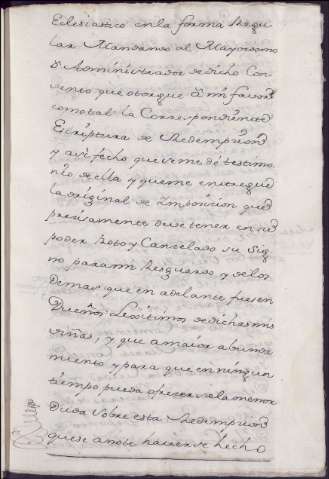 Eclesiastico en la forma Regu
lar Mandando al Mayordomo
o Administrador de dicho Con
vento que otorgue a mi favor
como tal la Correspondiente
Escriptura de Redempcion
y asi fecho que se me dé testimo
nio de ella y que me entregue
la original de Imposicion que
precisamente debe tener en su
poder Roto y Cancelado su Sig
no para mi Resguardo y de los
demas que en adelante fuesen
Dueños Lexitimos de dichas mis
viñas; y que a maior abunda
miento y para que en ningun
tiempo pueda ofrecer la menor
duda sobre esta Redempcion
que se anote haverse hecho